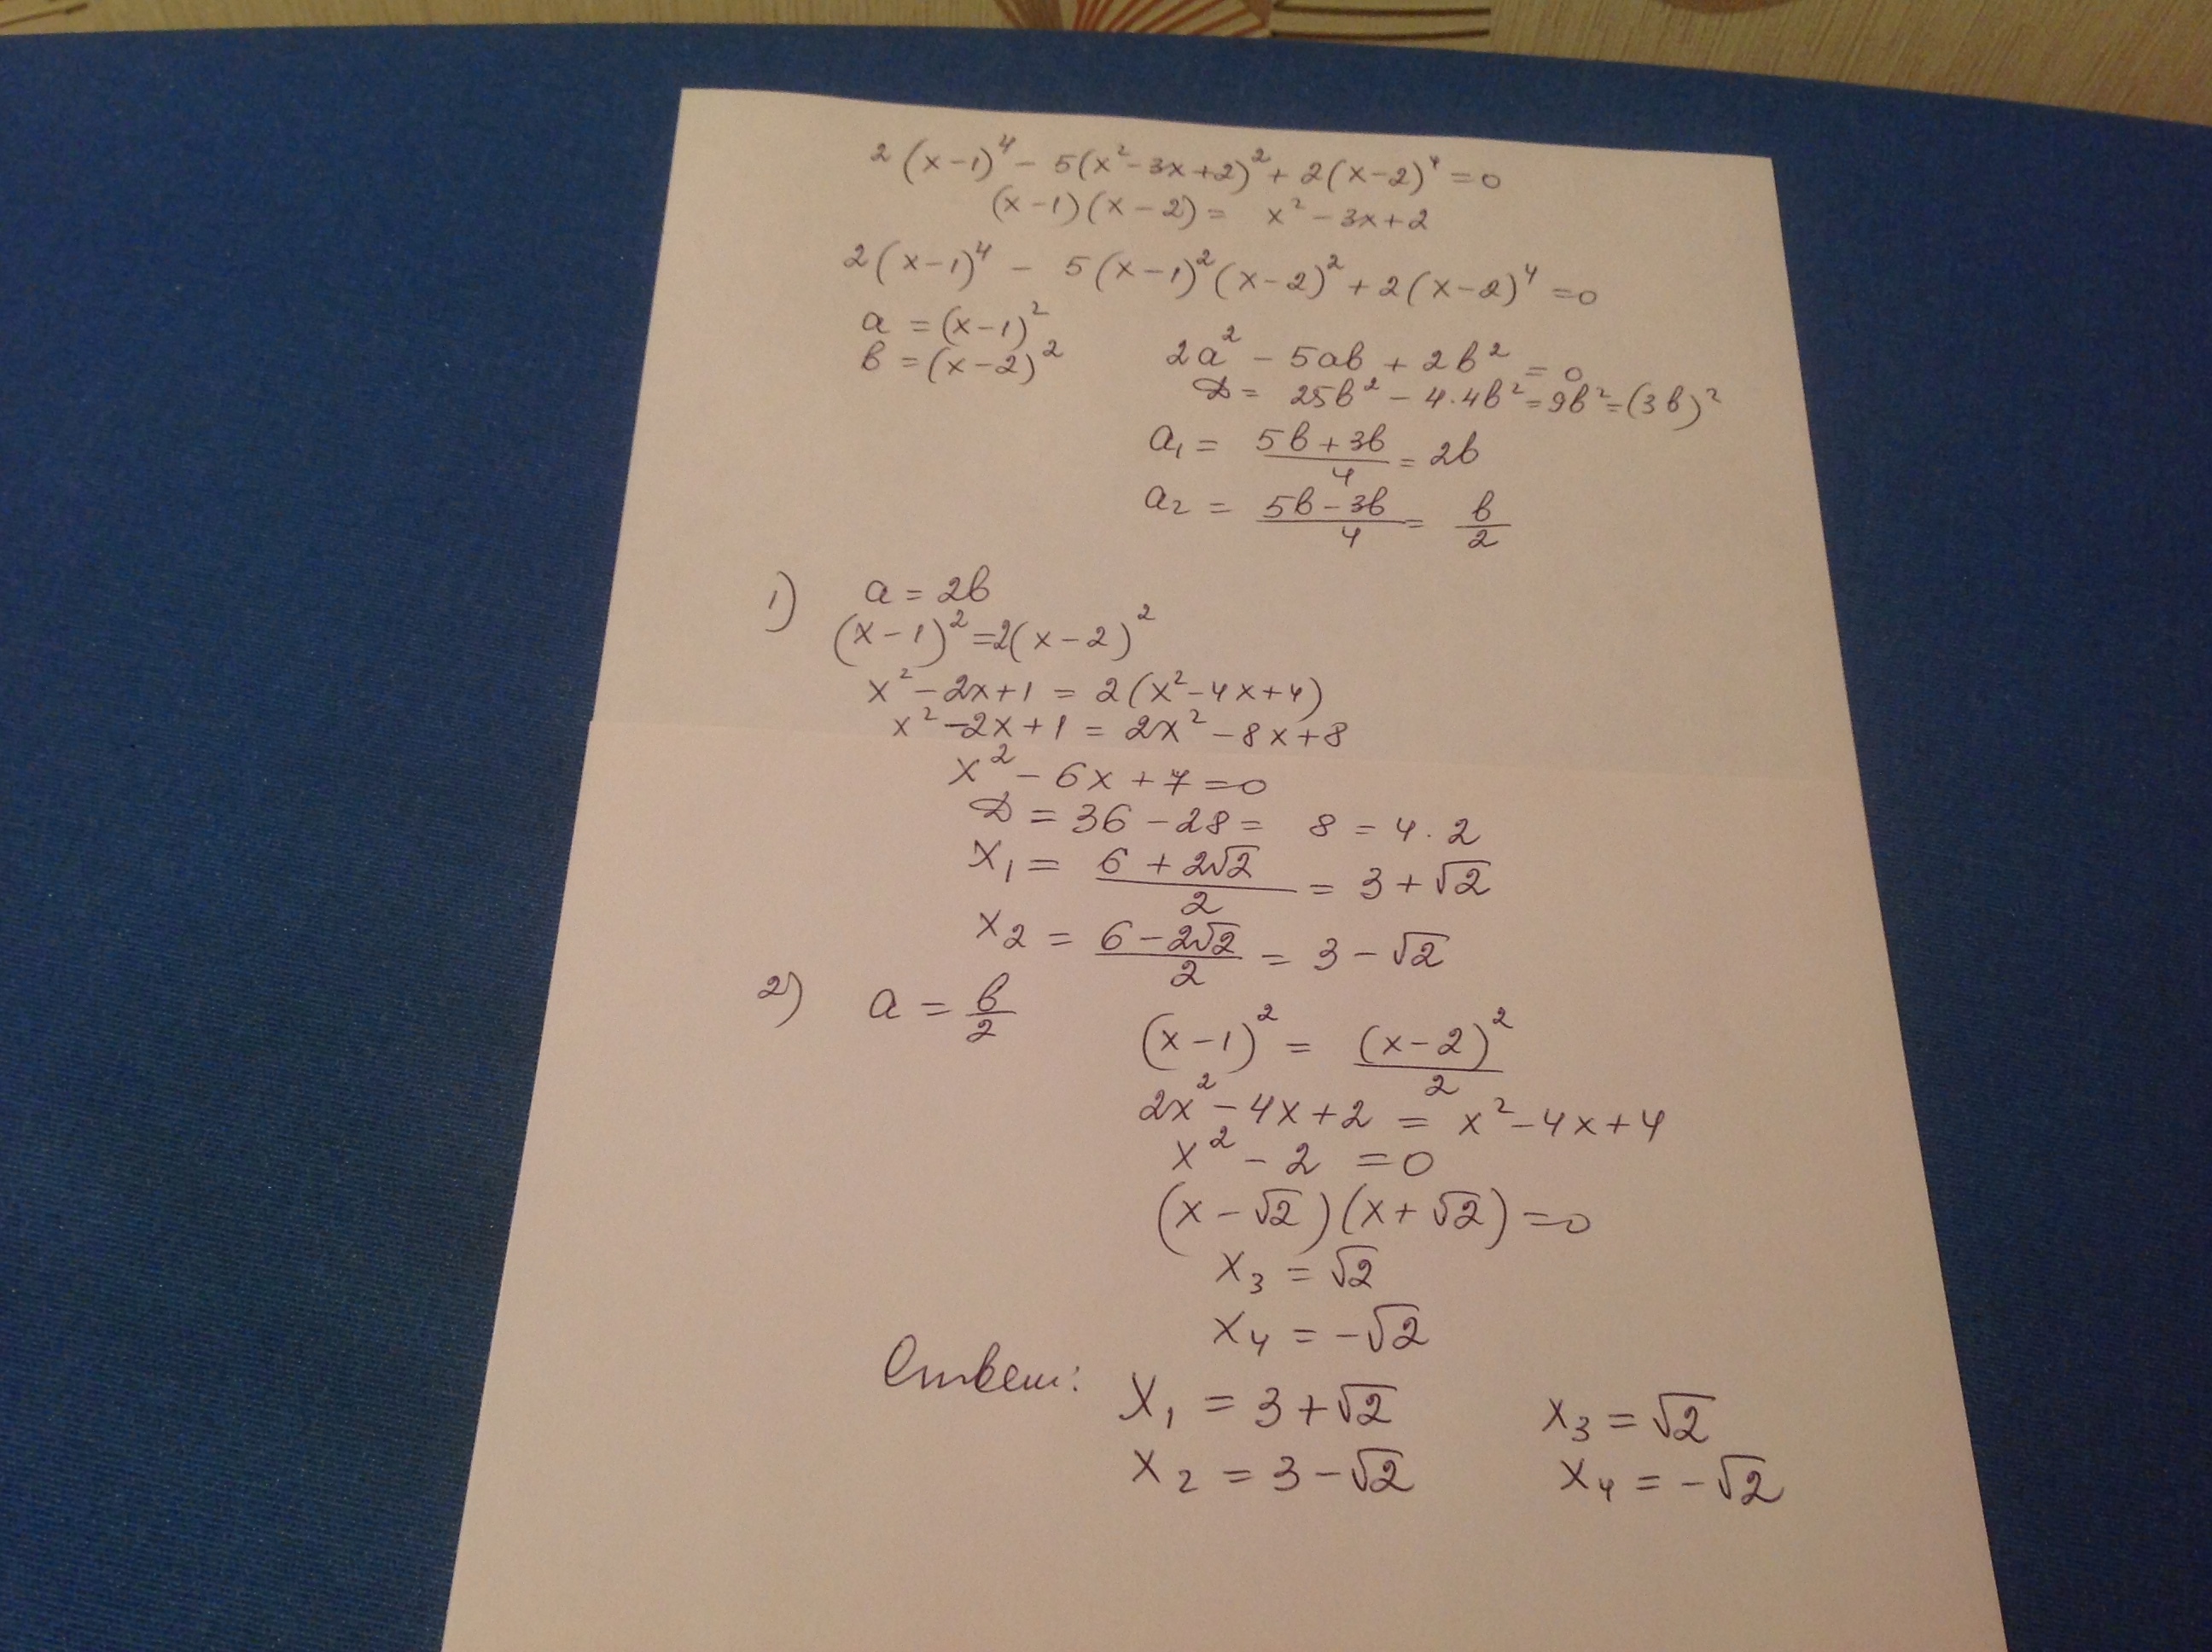 2(x-1)⁴ - 5(x²-3x+2)² + 2(x-2)⁴ = 0
(x-1)(x-2) = x² - 3x + 2
2(x-1)⁴ - 5(x-1)²(x-2)² + 2(x-2)⁴ = 0
a = (x-1)²
в = (x-2)²
2a² - 5aв + 2в² = 0
D = 25в² - 4·4в² = 9в² = (3в)²
a₁ = (5в+3в)/4 = 2в
a₂ = (5в-3в)/4 = в/2
1) a = 2в
(x-1)² = 2(x-2)²
x² - 2x + 1 = 2(x² - 4x + 4)
x² - 2x + 1 = 2x² - 8x + 8
x² - 6x + 7 = 0
D = 36 - 28 = 8 = 4·2
x₁ = (6 + 2√2)/2 = 3 + √2
x₂ = (6 - 2√2)/2 = 3 - √2
2) a = в/2
(x-1)² = (x-2)²/2
2x² - 4x + 2 = x² - 4x + 4
x² - 2 = 0
(x - √2)(x + √2) = 0
x₃ = √2
x₄ = -√2
Ответ: x₁ = 3 + √2 x₃ = √2
x₂ = 3 - √2 x₄ = -√2